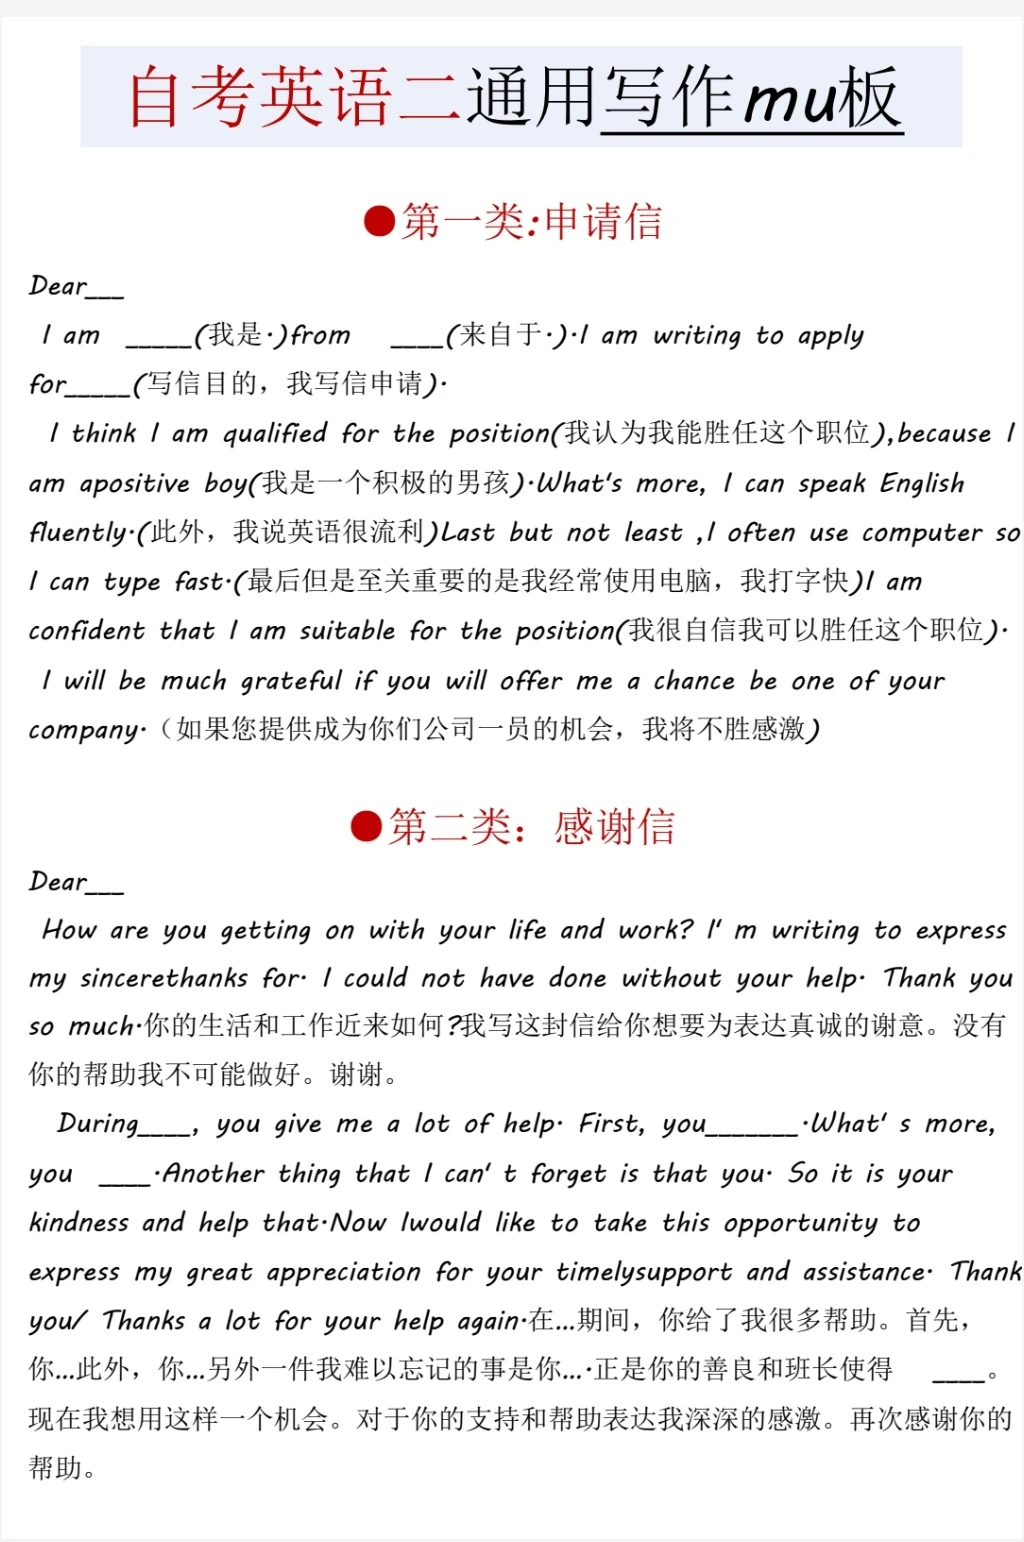 自考英语二通用写作mu板
●第一类:申请信
Dear___
I am _____(我是·)from ____(来自于·)·I am writing to apply
for_____(写信目的，我写信申请)·
I think I am qualified for the position(我认为我能胜任这个职位),because I
am apositive boy(我是一个积极的男孩)·What's more, I can speak English
fluently·(此外，我说英语很流利)Last but not least ,I often use computer so
I can type fast·(最后但是至关重要的是我经常使用电脑，我打字快)I am
confident that I am suitable for the position(我很自信我可以胜任这个职位)·
I will be much grateful if you will offer me a chance be one of your
company·（如果您提供成为你们公司一员的机会，我将不胜感激)
●第二类：感谢信
Dear___
How are you getting on with your life and work? I' m writing to express
my sincerethanks for· I could not have done without your help· Thank you
so much·你的生活和工作近来如何?我写这封信给你想要为表达真诚的谢意。没有
你的帮助我不可能做好。谢谢。
During____, you give me a lot of help· First, you_______·What' s more,
you ____·Another thing that I can' t forget is that you· So it is your
kindness and help that·Now Iwould like to take this opportunity to
express my great appreciation for your timelysupport and assistance· Thank
you/ Thanks a lot for your help again·在...期间，你给了我很多帮助。首先，
你...此外，你...另外一件我难以忘记的事是你...·正是你的善良和班长使得 ____。
现在我想用这样一个机会。对于你的支持和帮助表达我深深的感激。再次感谢你的
帮助。